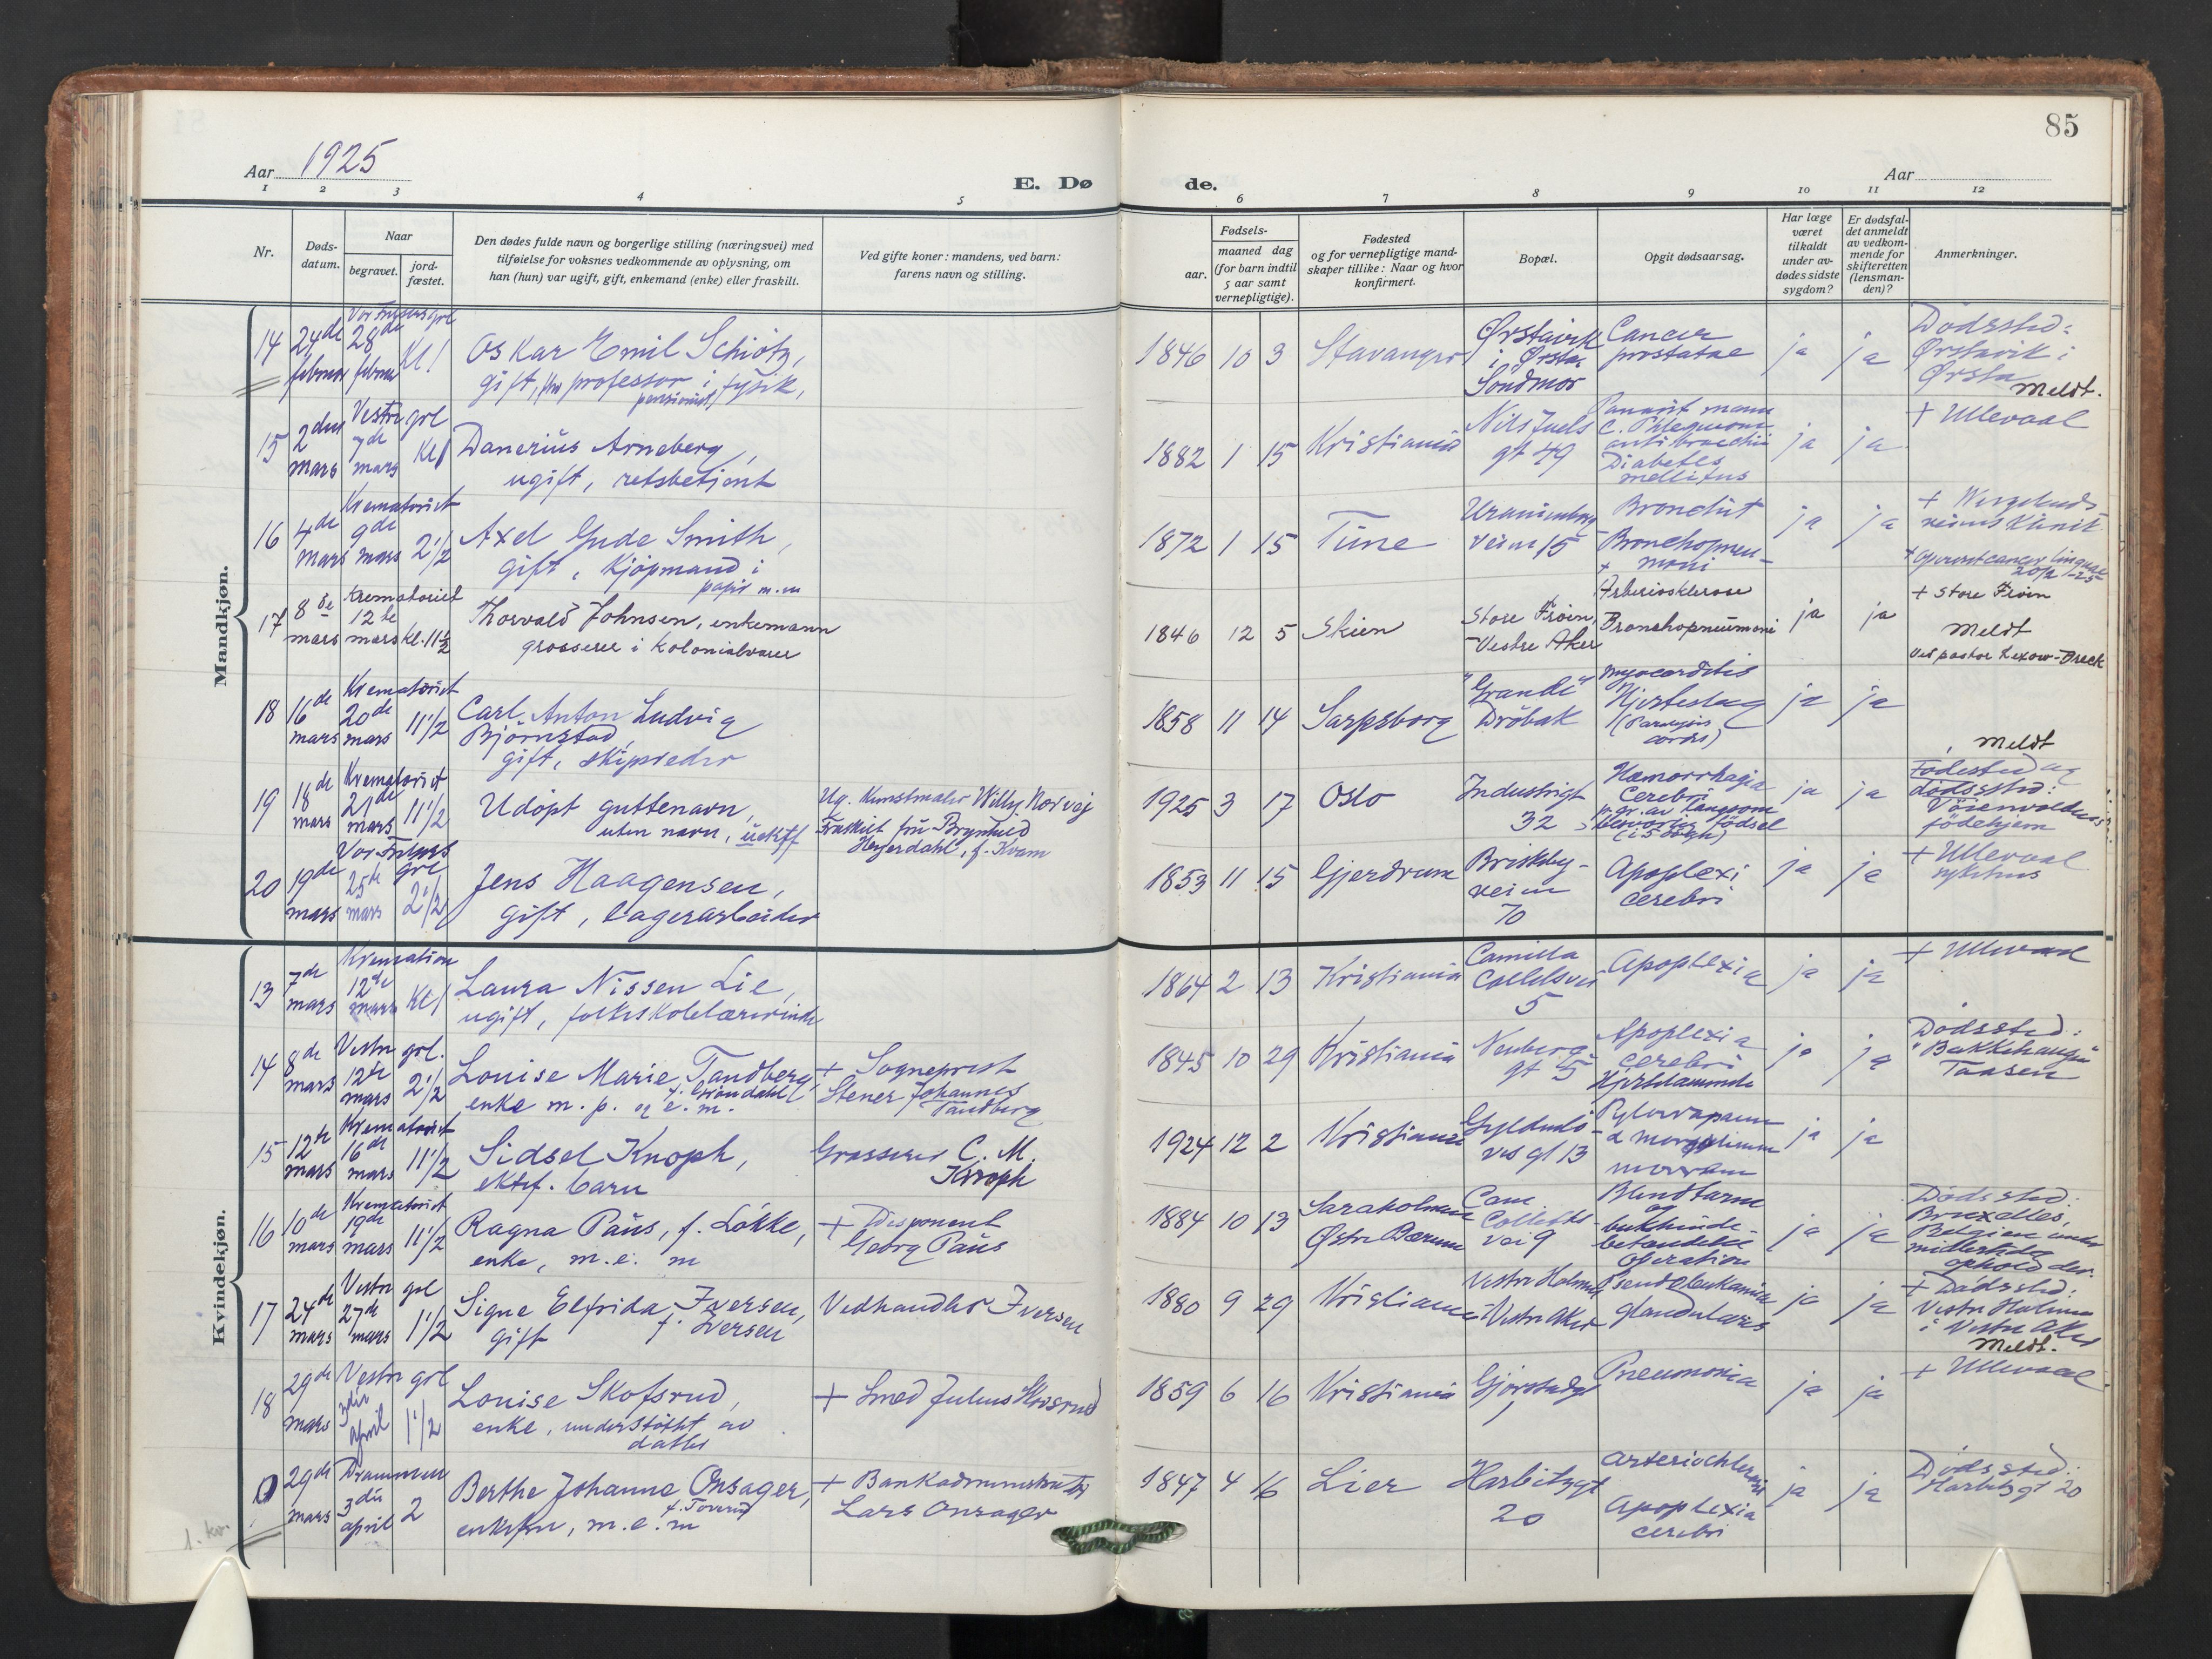 85
Aar 1925
E. Dø de.
Aar
1 2 3 4 5 6 7 8 9 10 11 12
Nr.
Døds-
datum.
Naar
begravet.
jord-
fæstet.
Den dødes fulde navn og borgerlige stilling (næringsvei) med
tilføielse for voksnes vedkommende av oplysning, om
han (hun) var ugift, gift, enkemand (enke) eller fraskilt.
Ved gifte koner: mandens, ved barn:
farens navn og stilling.
Fødsels-
aar.
maaned dag
(for barn indtil
5 aar samt
vernepligtige).
Fødested
og for vernepligtige mand-
skaper tillike: Naar og hvor
konfirmert.
Bopæl.
Opgit dødsaarsag.
Har læge
været
tilkaldt
under av-
dødes sidste
sygdom?
Er dødsfal-
det anmeldt
av vedkom-
mende for
skifteretten
(lensman-
den)?
Anmerkninger.
Mandkjøn.
14 24de februar
Vor Frelsers grl
28de februar Kl 1
Oskar Emil Schiøtz,
gift, professor i fysik,
pensionist,
1846 10 3 Stavanger
Ørstavik
i Ørsta
Søndmør
Cancer
prostatae
ja ja
Dødssted:
Ørstavik i
Ørsta
Meldt.
15 2den mars
Vestre grl
7de mars Kl 1
Danerius Arneberg,
ugift, retsbetjent
1882 1 15 Kristiania
Nils Juels
gt 49
antibrachii
Diabetes
mellitus
ja ja
+ Ullevaal
16 4de mars
Krematoriet
9de mars 2 1/2
Axel Gude Smith,
gift, Kjøpmand i
papir m.m
1872 1 15 Tune
Uranienborg
veien 15
Bronchit
Bronchopneu-
moni
ja ja
+ Wergelands
veiens Klinik
+ operert cancer linguae
20/2 -25
17 8de mars
Krematoriet
12te mars kl. 11 1/2
Thorvald Johnsen, enkemann
grosserer i kolonialvarer
1846 12 5 Skien
Store Frøen,
Vestre Aker
Arteriosklerose
Bronchopneumoni
ja ja
+ Store Frøen
Meldt
Ved pastor Lexow-Breck
18 16de mars
Krematoriet
20de mars 11 1/2
Carl Anton Ludvig
Bjørnstad,
gift, skipsreder
1858 11 14 Sarpsborg
"Grande"
Drøbak
Myocarditis
Hjerteslag
(Paralysis
cordis)
ja ja
Meldt
19 18de mars
Krematoriet
21de mars 11 1/2
Udøpt guttebarn,
uten navn, uektf
Ug. Kunstmaler Willy Norvej
Fraskilt fru Brynhild
Heyerdahl, f. Kvam
1925 3 17 Oslo
Industrigt
32
Hæmorrhagia
cerebri
p. gr. av langsom
besværlig fødsel
ja ja
Fødested og
dødssted:
Vøienvoldens
fødehjem
20 19de mars
Vor Frelsers grl
25de mars 2 1/2
Jens Haagensen,
gift, lagerarbeider
1853 11 15 Gjerdrum
Briskeby-
veien
70
Apoplexi
cerebri
ja ja
+ Ullevaal
sykehus
Kvindekjøn.
13 7de mars
Kremation
12te mars Kl 1
Laura Nissen Lie,
ugift, folkeskolelærerinde
1864 2 13 Kristiania
Camilla
Collettsvei
5
Apoplexia
ja ja
+ Ullevaal
14 8de mars
Vestre grl.
12te mars 2 1/2
Louise Marie Tandberg,
f. Grøndahl
enke m. p. og e. m.
+ Sogneprest
Stener Johannes
Tandberg
1845 10 29 Kristiania
Neuberg-
gt 5
Apoplexia
cerebri
Hjertelammelse
ja ja
Dødssted:
"Bakkehaugen"
Taasen
15 12te mars
Krematoriet
16de mars 11 1/2
Sidsel Knoph,
ektef. barn
Grosserer C. M.
Knoph
1924 12 2 Kristiania
Gyldenlø-
ves gt 13
ja ja
16 10de mars
Krematoriet
19de mars 11 1/2
Ragna Paus, f. Løkke,
enke, m. e. m
+ Disponent
Georg Paus
1884 10 13 Saraholmen
Østre Bærum
Cam.
Colletts
vei 9
Blindtarm
og
bukhinde-
betændelse
Operation
ja ja
Dødssted:
Bruxelles,
Belgien under
midlertidig
ophold der.
17 24de mars
Vestre grl
27de mars 1 1/2
Signe Elfrida Iversen,
f. Iversen
gift
Vedhandler Iversen
1880 9 29 Kristiania
Vestre Holmen
Vestre Aker
Pseudoleukæmia
glandularis
ja ja
+ Dødssted:
Vestre Holmen
i Vestre Aker
Meldt.
18 29de mars
Vestre grl
3die april 1 1/2
Louise Skofsrud,
enke, understøttet av
datter
+ Smed Julius Skofsrud
1859 6 16 Kristiania
Gjørstadgt
1
Pneumonia
ja ja
+ Ullevaal
0 29de mars
Drammen
3die april 2
Berthe Johanne Onsager,
f. Toverud
enkefru, m. e. m
+ Bankadministrator
Lars Onsager
1847 4 16 Lier
Harbitzgt
20
Apoplexia
cerebri
ja ja
Dødssted:
Harbitzgt 20
1. kv.